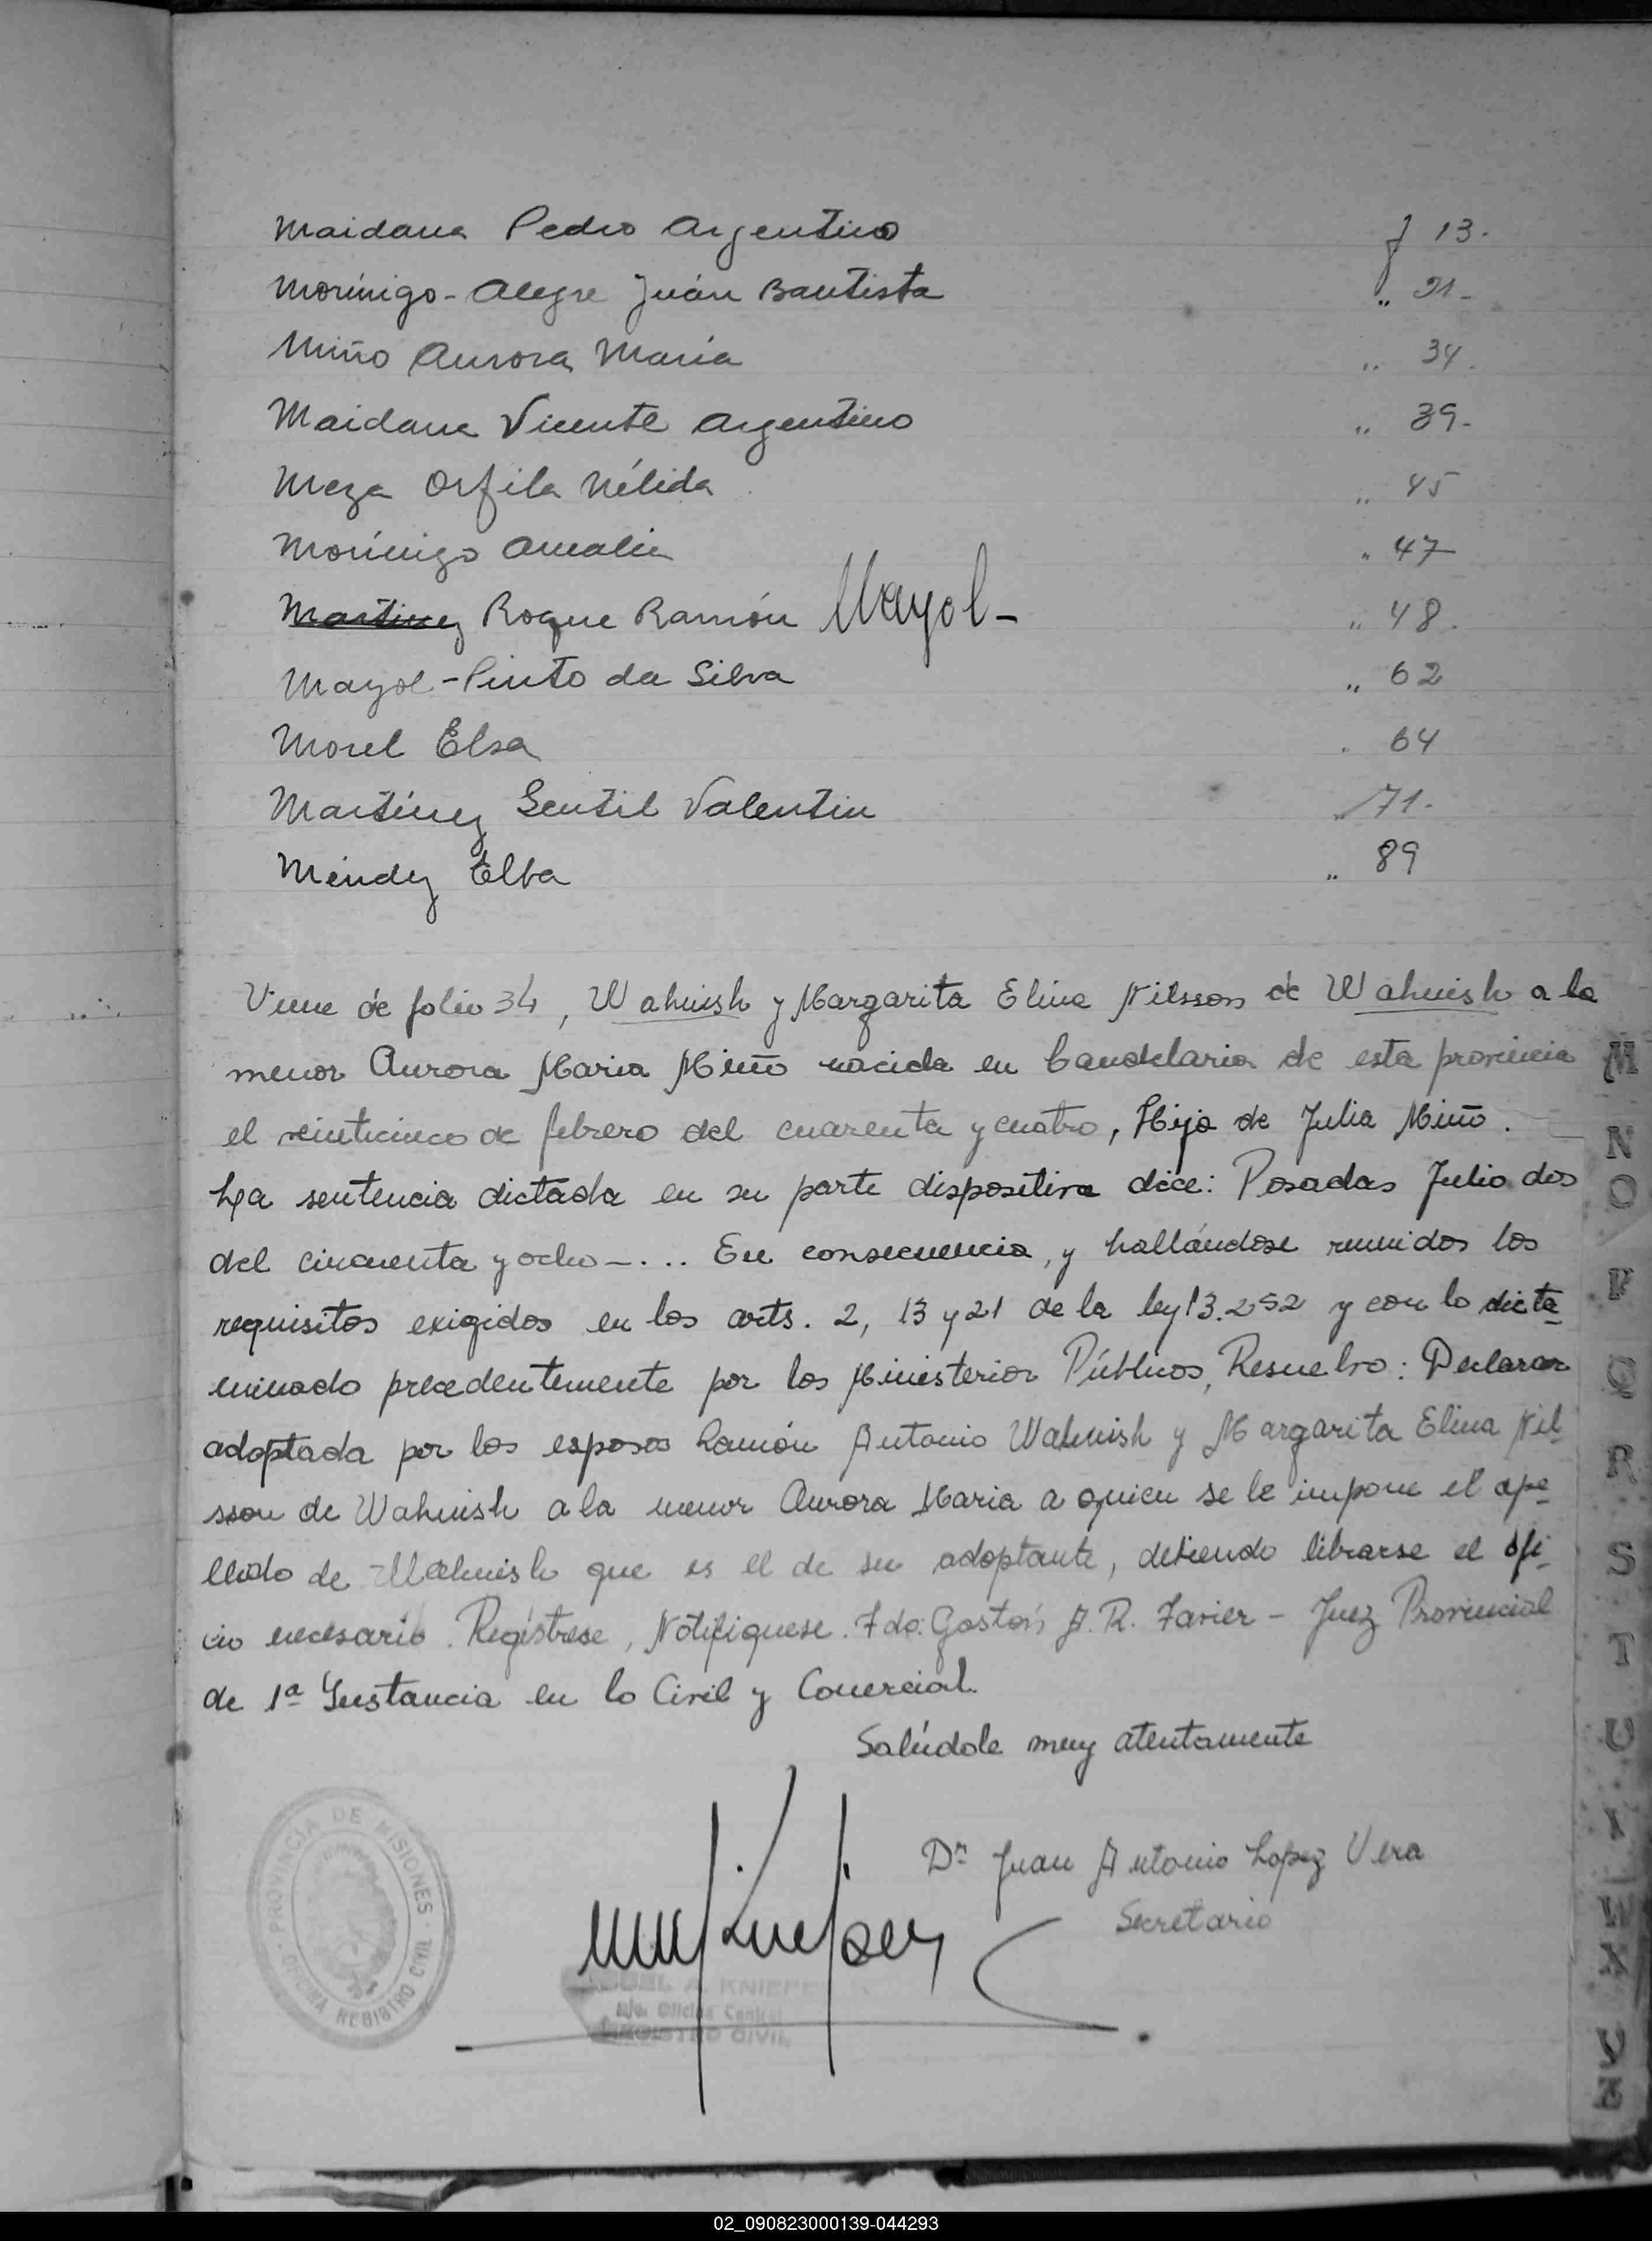 Maidana Pedro Argentino f 13.
Morínigo - Alegre Juán Bautista " 21 -
Miño Aurora María " 34.
Maidana Vicente Argentino " 39.
Meza Orfila Nélida " 45
Morínigo Amalia " 47
Martinez Roque Ramón Mayol - " 48.
Mayol - Pinto da Silva " 62
Morel Elsa " 64
Martínez Gentil Valentin " 71.
Méndez Elba " 89
Viene de folio 34, Wahnish y Margarita Elina Nilsson de Wahnish a la
menor Aurora Maria Miño nacida en Candelaria de esta provincia
el veinticinco de febrero del cuarenta y cuatro, Hija de Julia Miño.
La sentencia dictada en su parte dispositiva dice: Posadas Julio dos
del cincuenta y ocho - ... En consecuencia, y hallándose reunidos los
requisitos exigidos en los arts. 2, 13 y 21 de la ley 13.252 y con lo dicta
minado precedentemente por los Ministerior Públicos, Resuelvo: Declarar
adoptada por los esposos Ramón Antonio Wahnish y Margarita Elina Nil
sson de Wahnish a la menor Aurora Maria a quien se le impone el ape
llido de Wahnish que es el de su adoptante, debiendo librarse el ofi
cio necesario. Regístrese, Notifiquese. Fdo: Gastón A. R. Favier - Juez Provincial
de 1ª Instancia en lo Civil y Comercial.
Salúdole muy atentamente
Dr Juan Antonio Lopez Vera
Secretario
PROVINCIA DE MISIONES
OFICINA REGISTRO CIVIL
A. KNIEPE
Oficina Central
REGISTRO CIVIL
M
N
O
P
Q
R
S
T
U
V
W
X
02_090823000139-044293